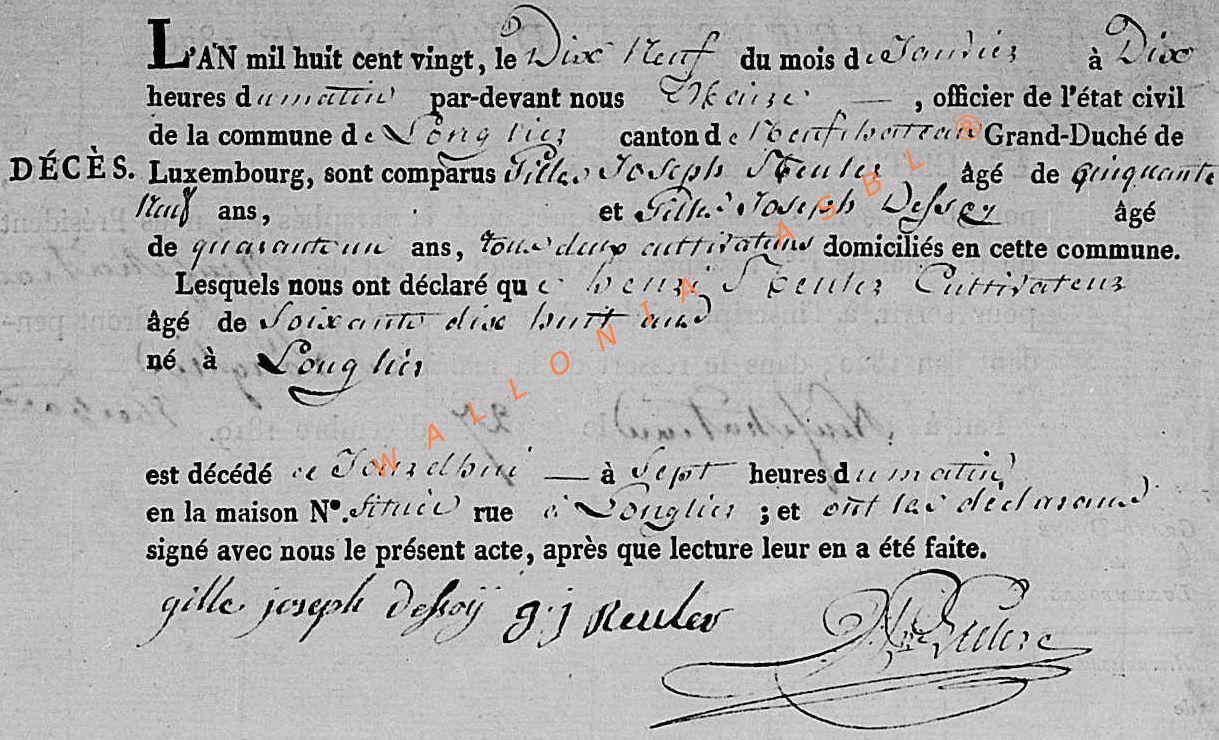 L'AN mil huit cent vingt, le Dix Neuf du mois de Janvier à Dix
heures du matin par-devant nous Maire — , officier de l'état civil
de la commune de Longlier canton de Neufchateau Grand-Duché de
DÉCÈS. Luxembourg, sont comparus Gilles Joseph Reuler âgé de quinquante
Neuf ans, et Gilles Joseph Dessoy âgé
de quarante un ans, tous deux cultivateurs domiciliés en cette commune.
Lesquels nous ont déclaré que henri Reuler Cultivateur
âgé de Soixante dix huit ans
né à Longlier
est décédé ce Jourdhui — à Sept heures du matin
en la maison N°. située rue à Longlier ; et ont les déclarans
signé avec nous le présent acte, après que lecture leur en a été faite.
gille joseph Dessoÿ g:j Reuler
WALLONIA ASBL ®